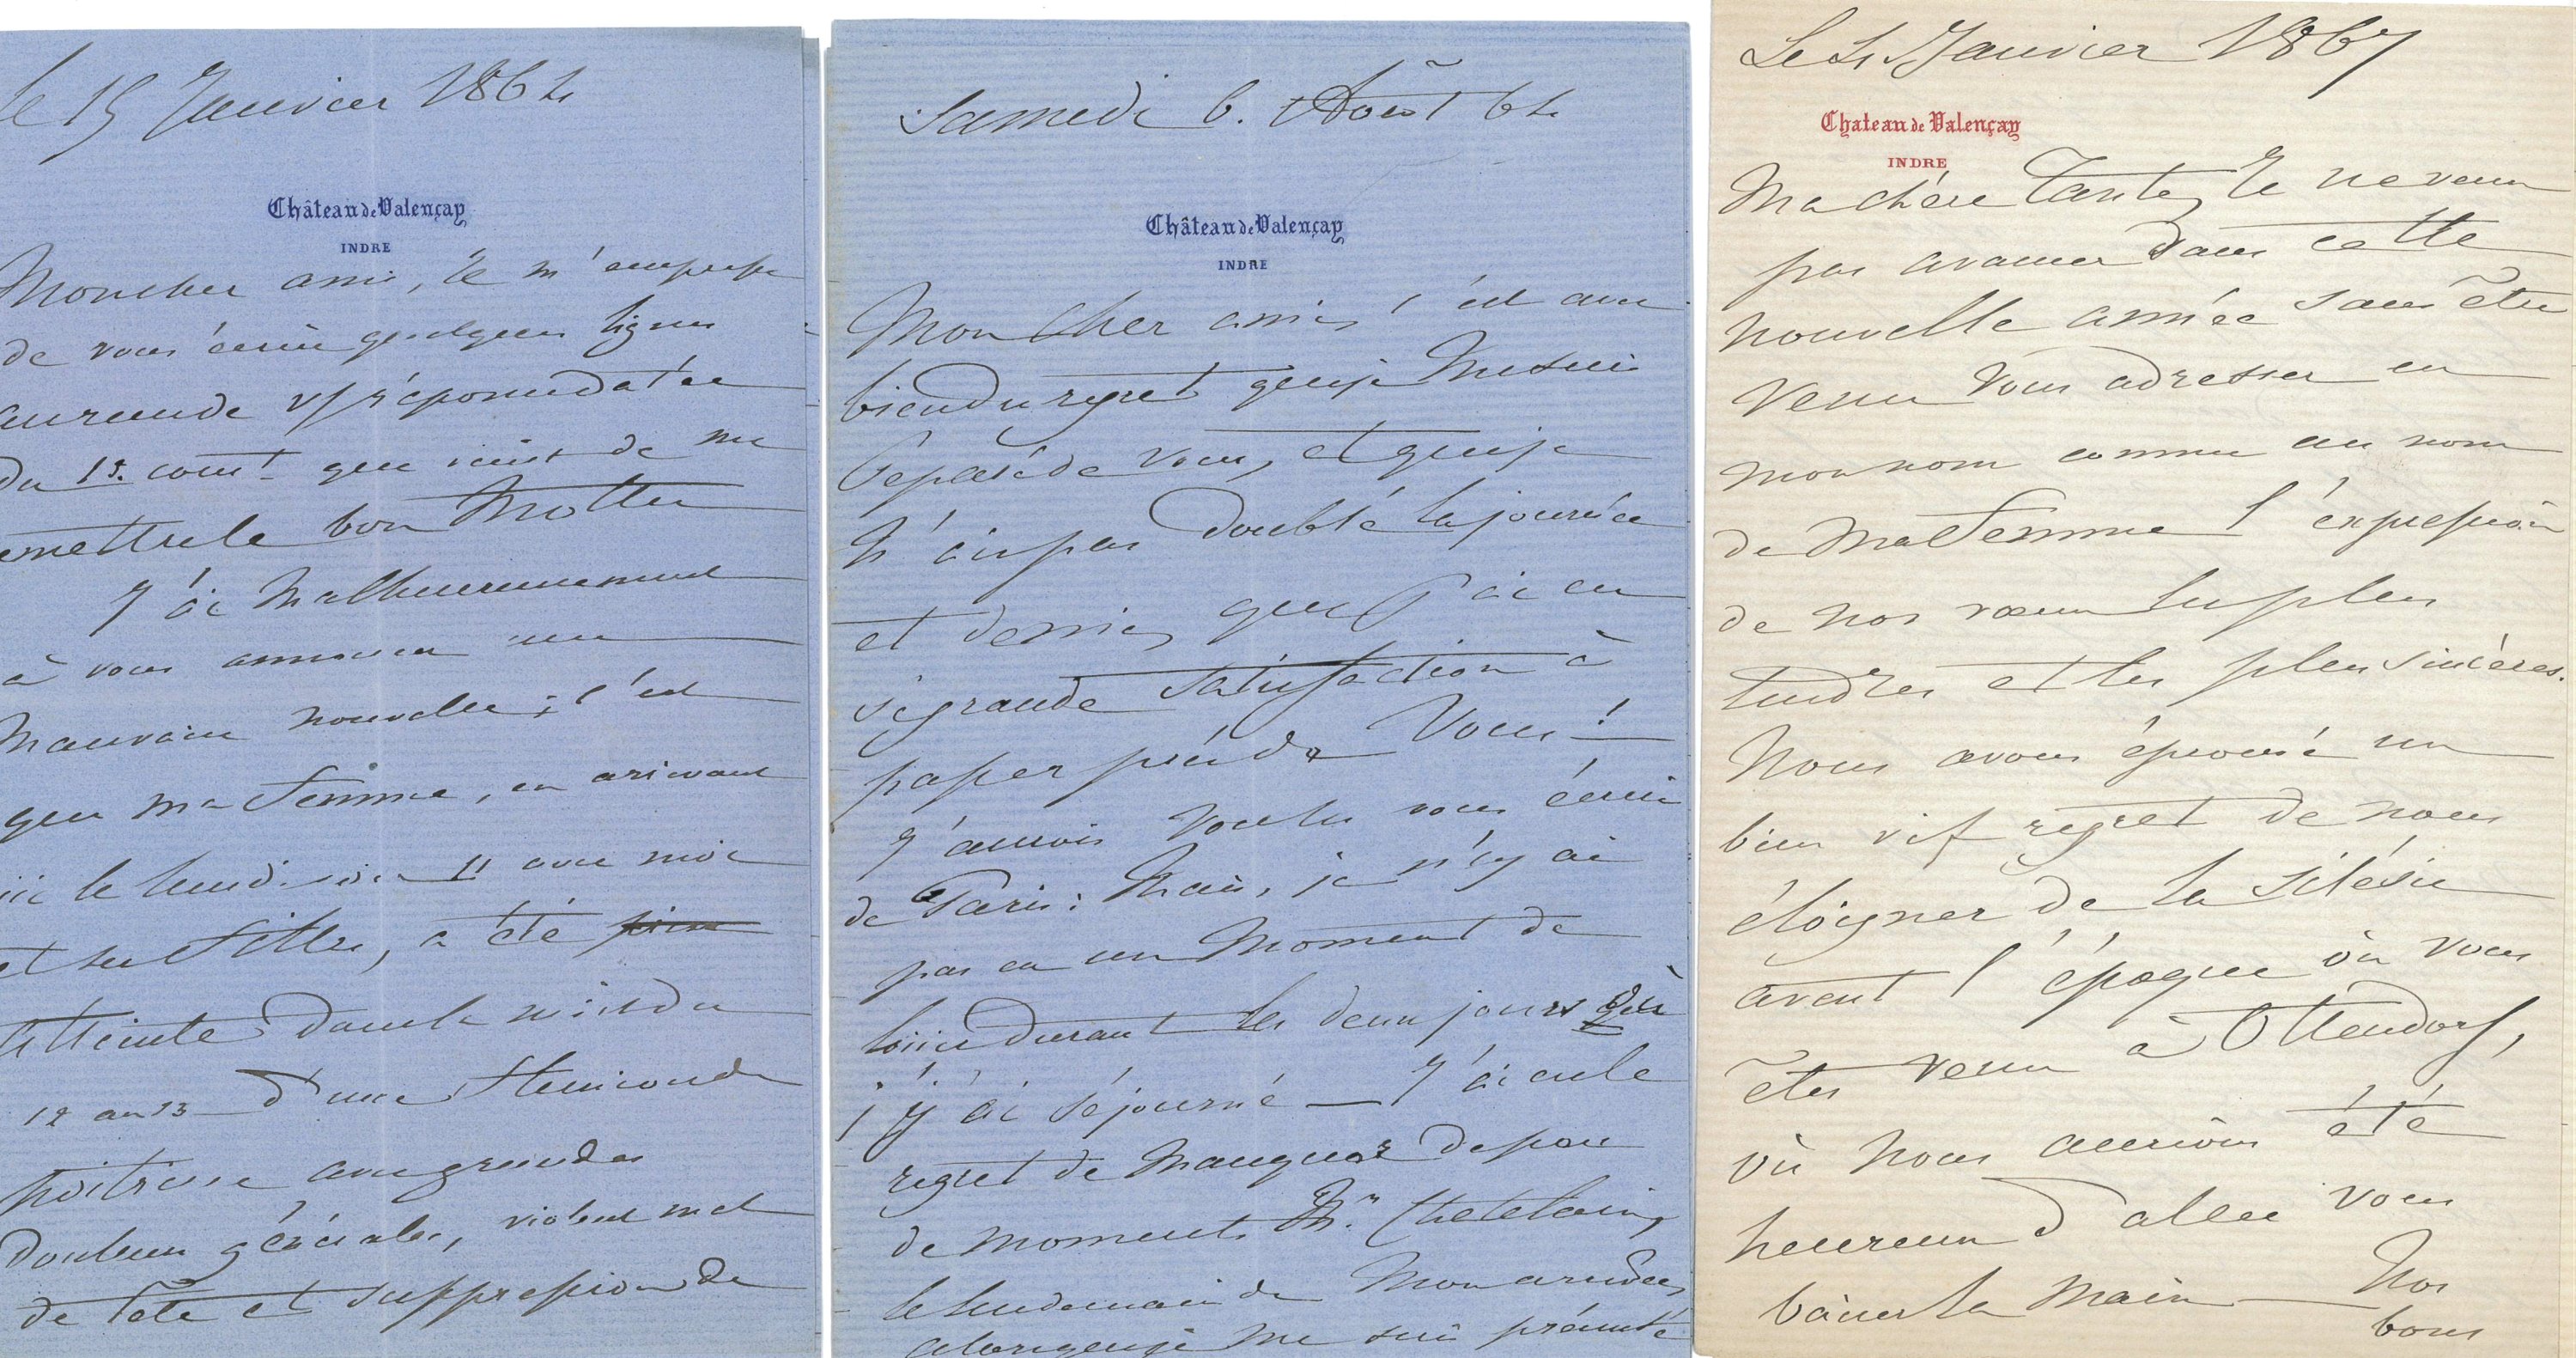 le 15 Janvier 1864
Château de Valençay
INDRE
Mon cher ami, Je m'empresse
de vous écrire quelques lignes
en réponse datée
du 13. cour.t que vient de me
remettre le bon Motter
J'ai Malheureusement
à vous annoncer une
Mauvaise nouvelle; c'est
que ma femme, en arrivant
ici le lundi soir 11 avec moi
et sa fille, a été
atteinte dans la nuit du
12 au 13 d'une fluxion de
poitrine avec grandes
Douleurs générales, violent mal
de Tête et suppression de
Samedi 6. Août 64
Château de Valençay
INDRE
Mon Cher ami, c'est avec
bien du regret que je Me suis
séparé de Vous, et que je
N'ai pas Doublé la journée
et demie, que j'ai eu
si grande satisfaction à
passer près de Vous!
J'aurois Voulu vous écrire
de Paris: Mais, je n'y ai
pas eu un Moment de
loisir durant les deux jours que
j'y ai séjourné — J'ai eu le
regret de Manquer de peu
de Moments Mr. Chatelain,
le lendemain de Mon arrivée,
alors que je me suis présenté
Le 4 Janvier 1867
Chateau de Valençay
INDRE
Ma chère Tante, Je ne veux
pas avancer Dans cette
Nouvelle année sans être
Venu Vous adresser en
Mon nom comme au nom
de Ma Femme l'expression
de nos vœux les plus
tendres et les plus sincères.
Nous avons éprouvé un
bien vif regret de nous
éloigner de la Silésie
avant l'époque où vous
êtes venu à Ottendorf,
où Nous aurions été
heureux D'aller Vous
baiser la Main — Nos
bons